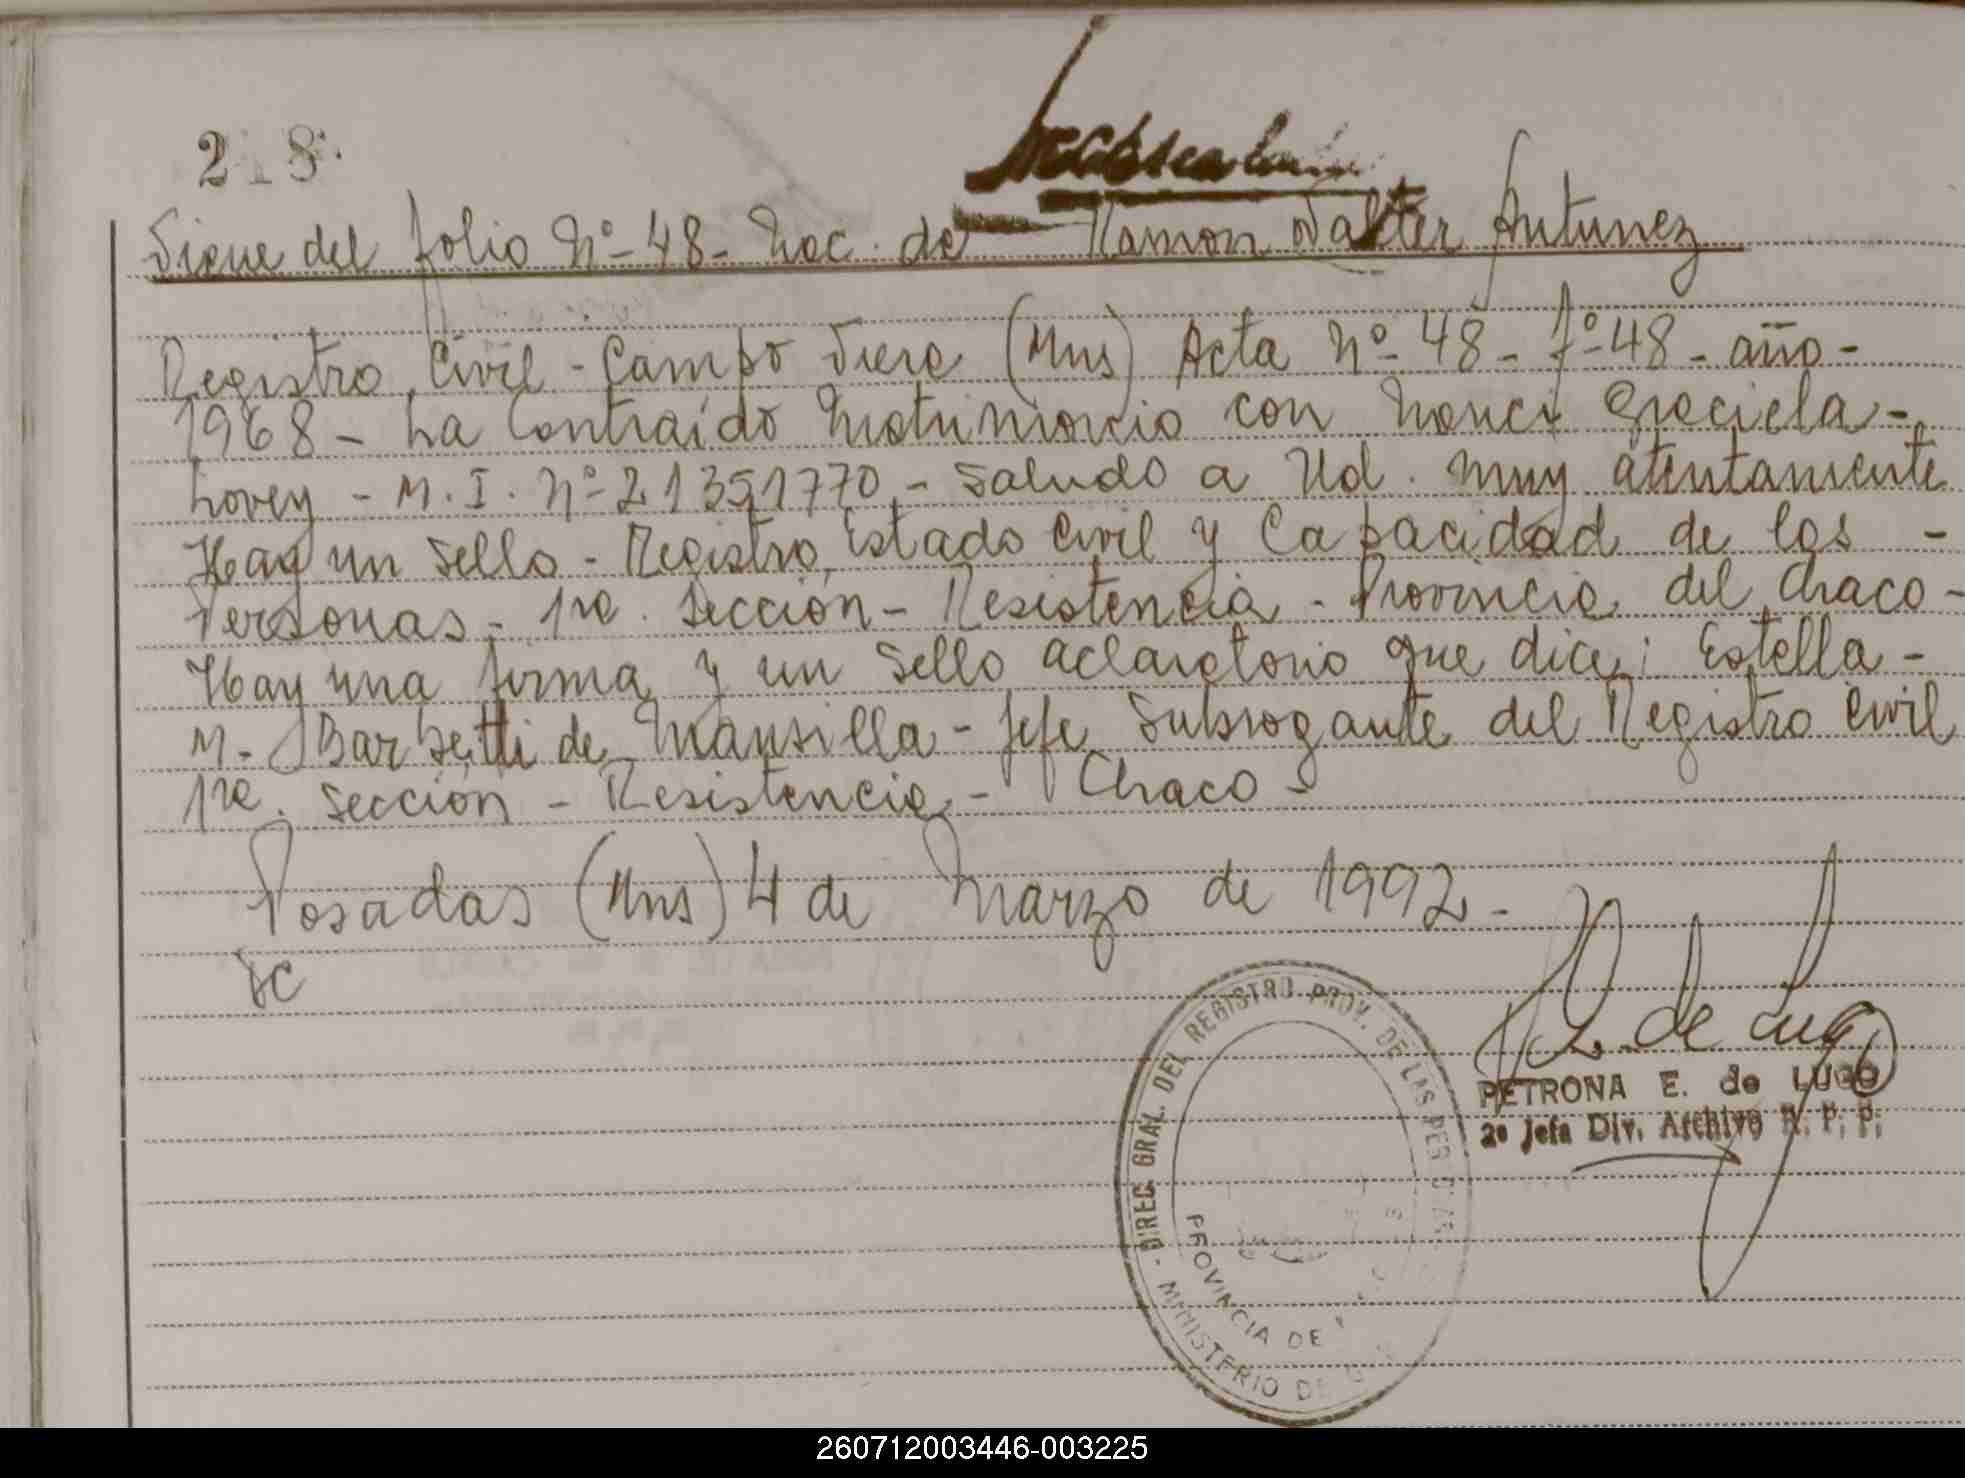 218.
Sigue del folio Nº-48- Nac. de Ramon Walter Antunez
Registro Civil - Campo Viera (Mns) Acta Nº-48- Fº-48- año-
1968- ha Contraído Matrimonio con Nanci Graciela-
Lovey - M.I. Nº-21351770.- Saludo a Ud. muy atentamente
Hay un Sello - Registro Estado Civil y Capacidad de las -
Personas- 1ra. Sección- Resistencia - Provincia del Chaco-
Hay una firma y un Sello aclaratorio que dice: Estella-
M- Barbetti de Mansilla- Jefe Subrogante del Registro Civil
1ra. Sección - Resistencia - Chaco-
Posadas (Mns) 4 de Marzo de 1992-
P. E. de Lugo
PETRONA E. de LUGO
2º Jefa Div. Archivo R. P. P.
DIREC. GRAL. DEL REGISTRO PROV. DE LAS PERSONAS
PROVINCIA DE
MINISTERIO DE
260712003446-003225